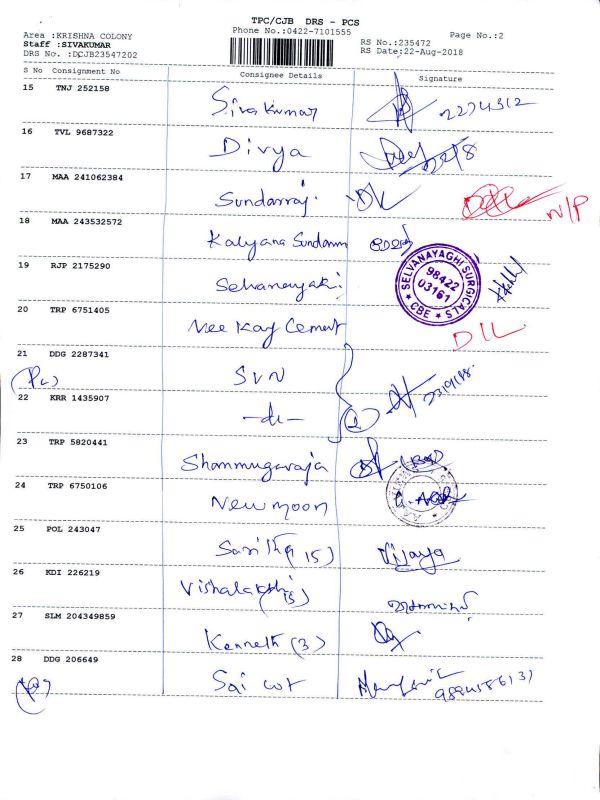 TPC/CJB DRS - PCS
Phone No.:0422-7101555
Page No.:2
Area :KRISHNA COLONY
Staff :SIVAKUMAR
DRS No. :DCJB23547202
RS No.:235472
RS Date:22-Aug-2018
S No Consignment No Consignee Details Signature
15 TNJ 252158
Sivakumar
16 TVL 9687322
Divya
17 MAA 241062384
Sundarraj.
N/P
18 MAA 243532572
Kalyana Sundaram
19 RJP 2175290
Selvanayaki
SELVANAYAGHI SURGICALS
98422
03161
* CBE *
20 TRP 6751405
Mee Kay Cement
DIL
21 DDG 2287341
SVN
22 KRR 1435907
-do-
2
23 TRP 5820441
Shanmugaraja
24 TRP 6750106
New moon
25 POL 243047
Saritha (15) Vijaya
26 KDI 226219
Vishalakshi
(15)
27 SLM 204349859
Kenneth (3)
28 DDG 206649
Sai cot